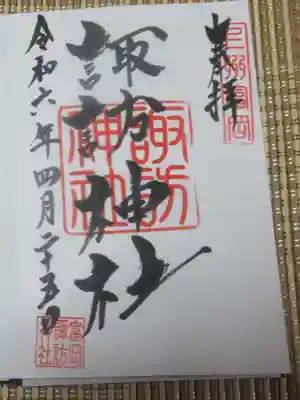 奉拝
諏訪神社
諏訪神社
令和六年四月二十五日
富田
諏訪
神社